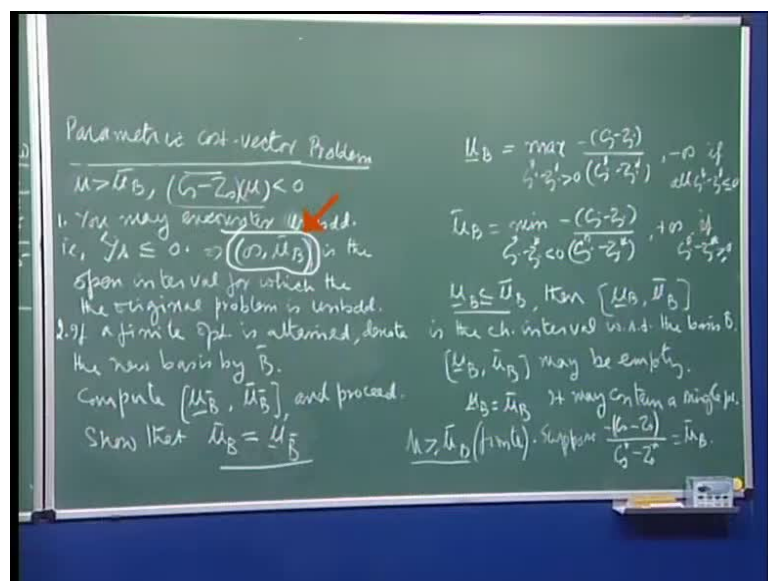 Parametric cost-vector Problem
μ > μ̄_B, (c̄_j - z_j)(μ) < 0
1. You may encounter unbdd.
ie, y_r ≤ 0. ⇒ (∞, μ̄_B) is the
open interval for which the
the original problem is unbdd.
2. If a finite opt. is attained, denote
the new basis by B̄.
Compute [μ_B̄, μ̄_B̄], and proceed.
Show that μ̄_B = μ_B̄
μ_B = max -(c_j - z_j) / (c_j* - z_j*), -∞ if
c_j* - z_j* > 0 all c_j* - z_j* ≤ 0
μ̄_B = min -(c_j - z_j) / (c_j* - z_j*), +∞ if
c_j* - z_j* < 0 c_j* - z_j* ≥ 0
μ_B ≤ μ̄_B, then [μ_B, μ̄_B]
is the ch. interval w.r.t. the basis B.
[μ_B, μ̄_B] may be empty.
μ_B = μ̄_B It may contain a single pt.
μ ≥ μ̄_B (finite). Suppose -(c_s - z_s) / (c_s* - z_s*) = μ̄_B.